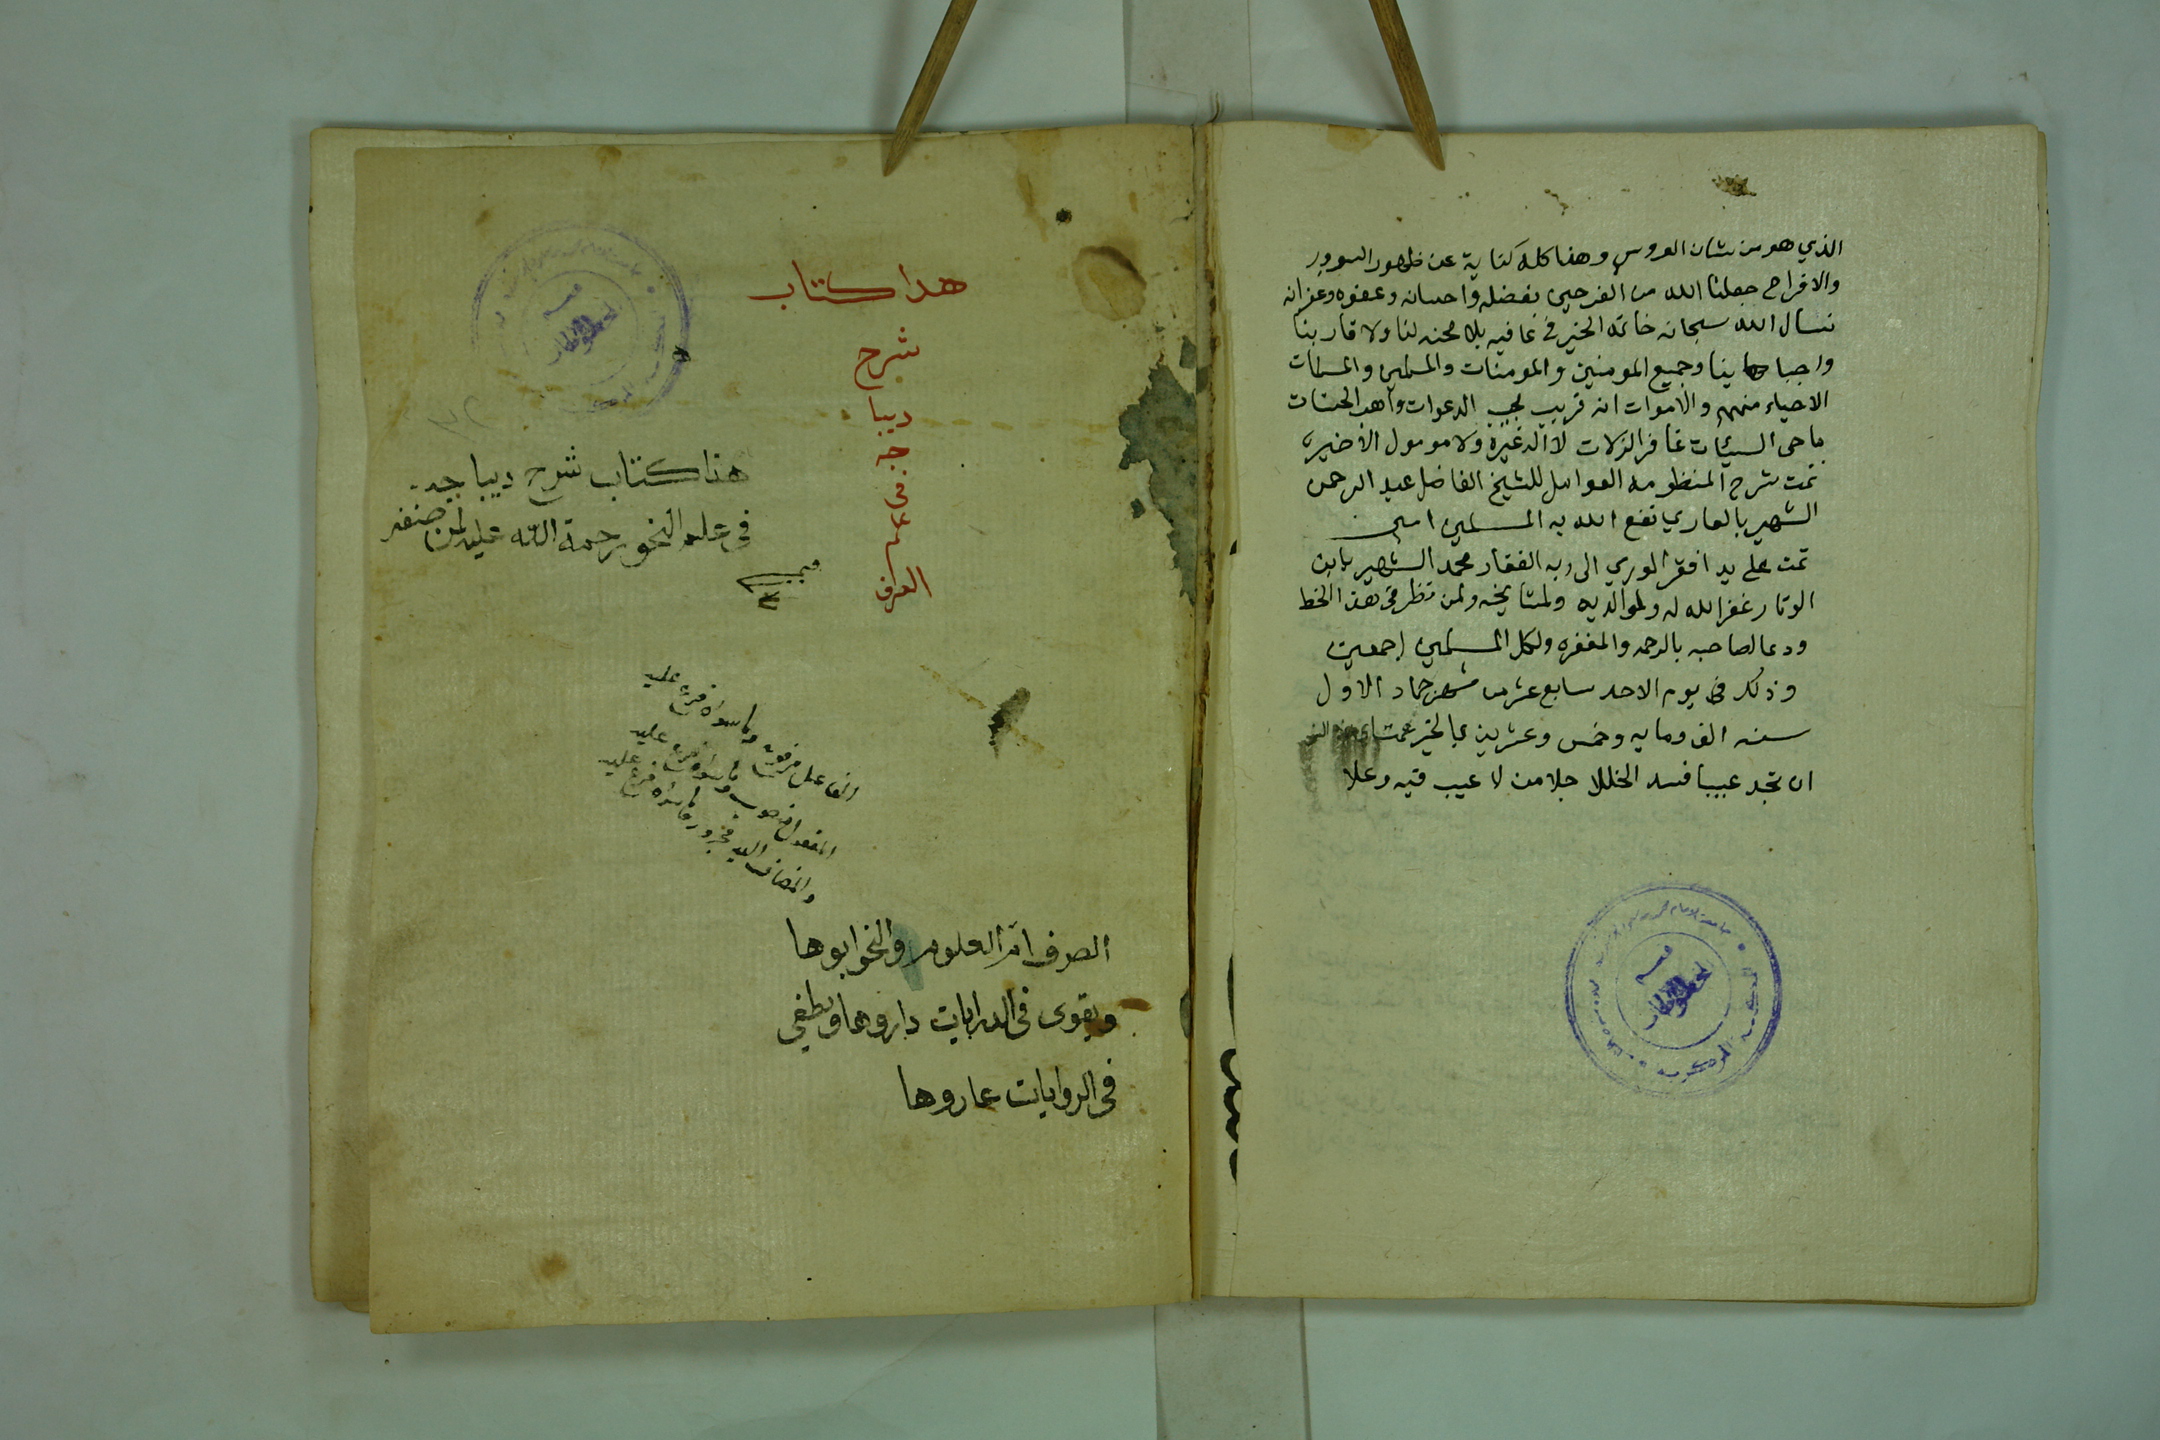 الذي هو من شان العروس وهذا كله كناية عن ظهور السرور
والافراح جعلنا الله من الفرحين بفضله واحسانه وعفوه وغفرانه
نسال الله سبحانه خاتمة الخير في عافيه بلا محنه لنا ولاقاربنا
واحبا بينا وجميع المومنين والمومنات والمسلمين والمسلمات
الاحياء منهم والاموات انه قريب مجيب الدعوات واهب الحسنات
ماحي السيئات غافر الزلات لا اله غيره ولا مومول الا خيره
تمت شرح المنظومه العوامل للشيخ الفاضل عبد الرحمن
الشهير بالعاري نفع الله به المسلمين امين
تمت على يد افقر الوري الى ربه الغفار محمد الشهير بابن
الوتار غفر الله له ولموالديه ولمشايخه ولمن نظر في هذا الخط
ودعا لصاحبه بالرحمه والمغفره ولكل المسلمين اجمعين
وذلك في يوم الاحد سابع عشر من شهر جماد الاول
سنه الف ومايه وخمس وعشرين
ان تجد عيبا فسد الخللا جلا من لا عيب فيه وعلا
هذا كتاب
شرح
ديبا
جه
في
علم
الصرف
هذا كتاب شرح ديباجه
في علم النحو رحمة الله عليه لمن صنفه
الفاعل مرفوع وما سواه فرع عليه
المفعول منصوب وما سواه فرع عليه
والمضاف اليه مجرور وما سواه فرع عليه
الصرف ام العلوم والنحو ابوها
ويقوى في الدرايات داروها ويطغى
في الروايات عاروها
قسم
المخطوطات
المكتبة المركزية
قسم
المخطوطات